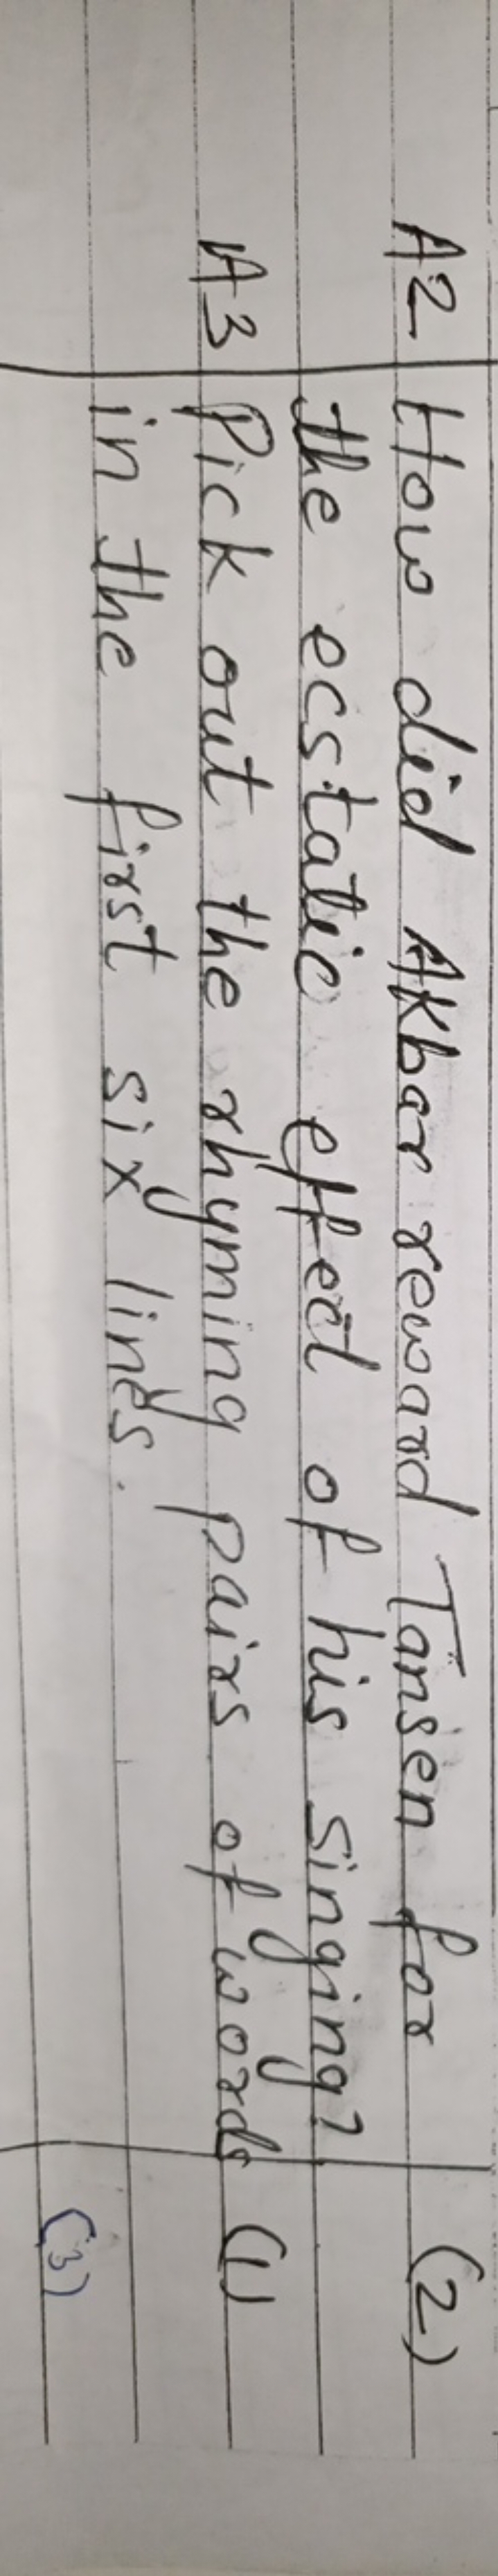 A2 How did Akbar reward Tansen for (2)
the ecstatic effect of his singing?
A3 Pick out the rhyming pairs of words (1)
in the first six lines.
(3)